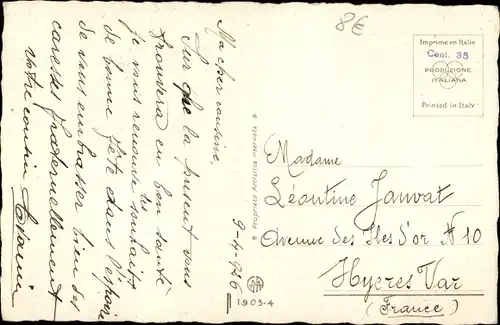 8€
Imprimé en Italie
Cent. 35
PRODUZIONE
ITALIANA
Printed in Italy
Ma cher cousine,
Sur que la present vous
trouvera en bon santé
je vous renouve les souhaits
de bonne fête dans l'espoir
de vous embrasser bien des
caresses fraternellement
votre cousin
9-4-936
1903-4
Madame
Léontine Janvat
Avenue des Iles d'or N 10
Hyeres Var
(France)